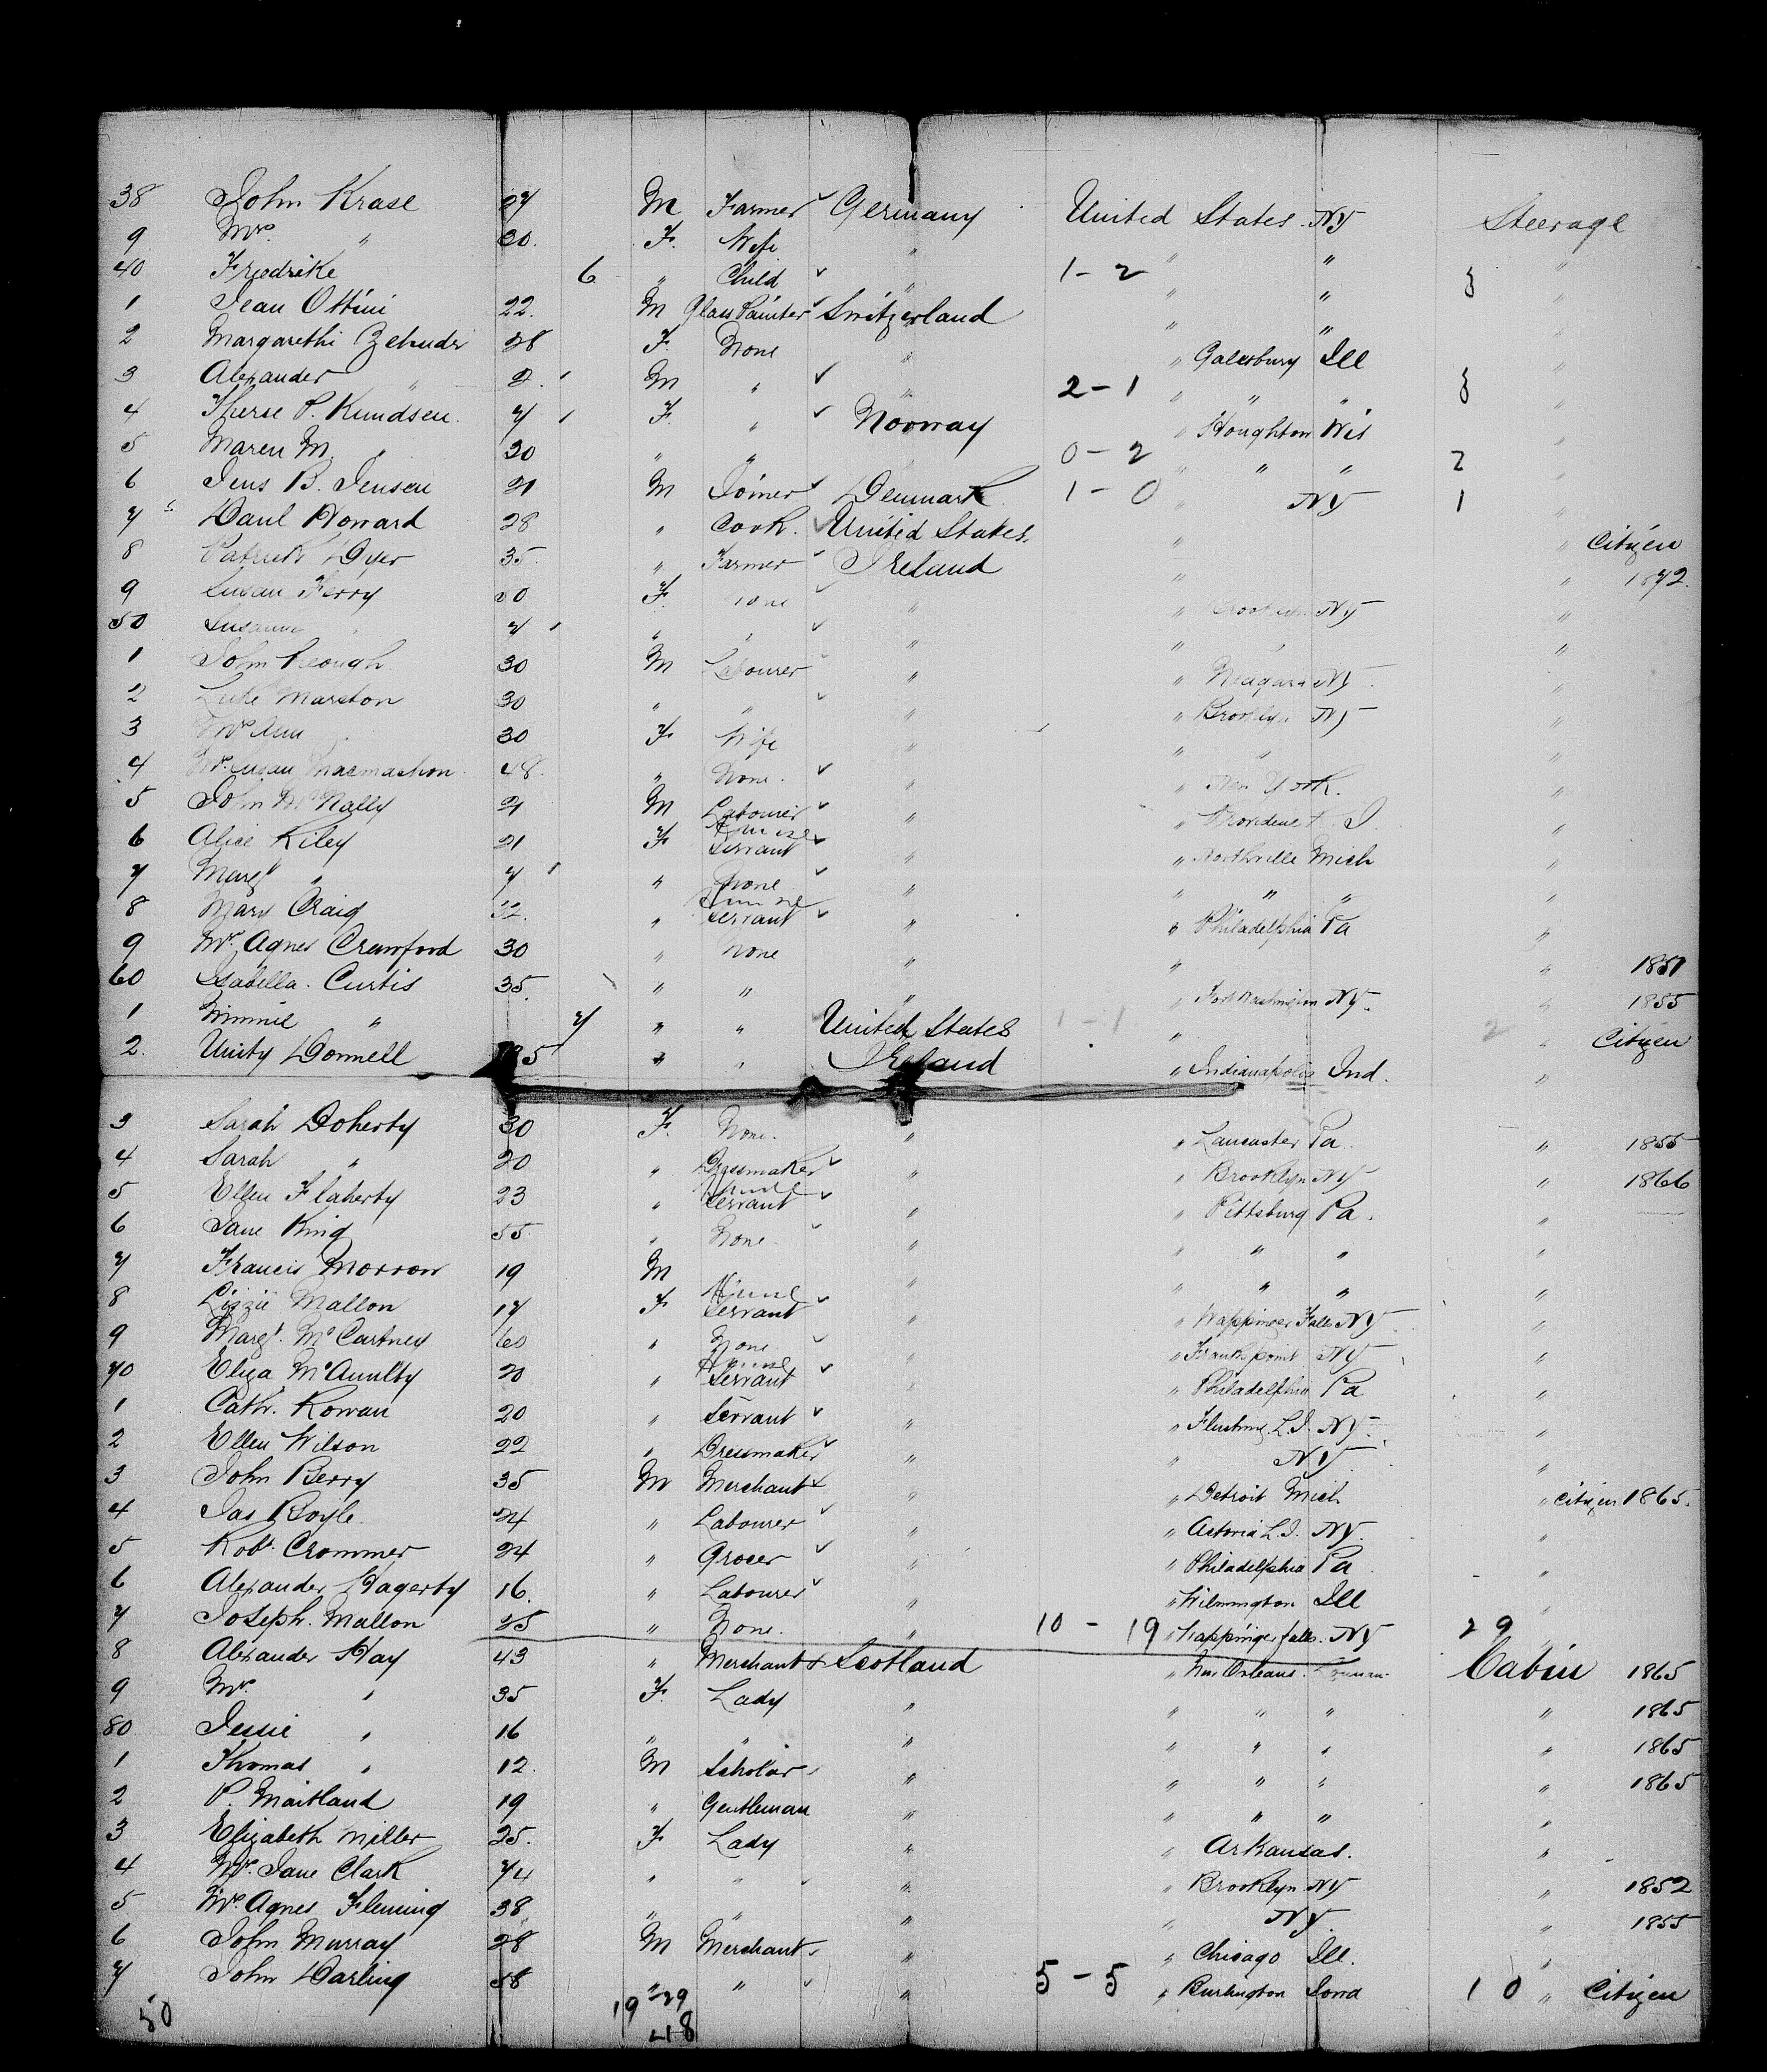 38 John Krase 27 M Farmer ✓ Germany United States. NY Steerage
9 Mrs. " 30. F. Wife " " " "
40 Friedrike 6 " Child ✓ " 1-2 " " 3 "
1 Jean Ottini 22. M Glass Painter ✓ Switzerland " " "
2 Margarethi Zehnder 28 F. None " " Galesburg Ill "
3 Alexander " 2. M " ✓ " 2-1 " " " 3 "
4 Therse P. Kundsen. 7 F. " ✓ Norway " Houghton Wis "
5 Maren M. " 20 " " 0-2 " " " 2 "
6 Jens B. Jensen 21 M Joiner ✓ Denmark 1-0 " NY 1 "
7 Danl Howard 28 " Cook. ✓ United States. " " Citizen
8 Patrick Dyer 35. " Farmer ✓ Ireland " " 1872.
9 Susan Ferry F. None ✓ " " Brooklyn NY "
50 Susanna " 7 " " ✓ " " " "
1 John Keough 30 M Labourer " " Niagara NY. "
2 Luke Marston 30 " " ✓ " " Brooklyn NY "
3 Mrs Ann " 30 F Wife " " " "
4 Mrs. Susan Macmachon. 48. " None. ✓ " " New York. "
5 John McNally 21 M Labourer ✓ " " Providence "
6 Alice Kiley 21 F House Servant ✓ " " Northville Mich "
7 Margt " 7 " None ✓ " " " " "
8 Mary Craig 32. " House Servant ✓ " " Philadelphia Pa "
9 Mrs. Agnes Crawford 30 " None " " " 1851
60 Isabella. Curtis 35. " " " " Fort Washington NY. " 1855
1 Minnie " 7 " " United States 1-1 " 2 " Citizen
2. Unity Donnell 35 " " Ireland " Indianapolis Ind. "
3 Sarah Doherty 30 F. None. " " Lancaster Pa. " 1855
4 Sarah " 20 " Dressmaker ✓ " " Brooklyn NY " 1866
5 Ellen Flaherty 23 " House Servant ✓ " " Pittsburg Pa. "
6 Jane King 55. " None. ✓ " " " " "
7 Francis Morrow 19 M " " " " "
8 Lizzie Mallon 17 F House Servant ✓ " " Wappinger Falls NY. "
9 Margt. McCartney 60 " None ✓ " " NY "
70 Eliza McAnulty 20 " House Servant ✓ " " Philadelphia Pa "
1 Cathr. Rowan 20 " Servant ✓ " " Flushing. L.I. NY. "
2 Ellen Wilson 22 " Dressmaker ✓ " " NY. "
3 John Berry 35 M Merchant " " Detroit Mich " Citizen 1865.
4 Jas Boyle. 24 " Labourer ✓ " " Astoria L.I. NY. "
5 Robt. Crommer 24 " Grocer ✓ " " Philadelphia Pa "
6 Alexander Hagerty 16. " Labourer ✓ " " Wilmington Ill "
7 Joseph. Mallon 25 " None. " 10-19 " Wappinger falls. NY 29 "
8 Alexander Hay 43 " Merchant Scotland " New Orleans. Cabin 1865
9 Mrs. " 35 F. Lady " " " " " 1865
80 Jessie " 16 " " " " " " " 1865
1 Thomas " 12. M Scholar " " " " " 1865
2 P. Maitland 19 " Gentleman " " " " "
3 Elizabeth Miller 25. F Lady " " Arkansas. "
4 Mrs. Jane Clark 74 " " ✓ " " Brooklyn NY " 1852
5 Mrs Agnes Fleming 38 " " " " NY. " 1855
6 John Murray 28 M Merchant " " Chicago Ill. "
7 John Darling 58 " " ✓ " 5-5 " Burlington Iowa 10 " Citizen
50 19-29
48